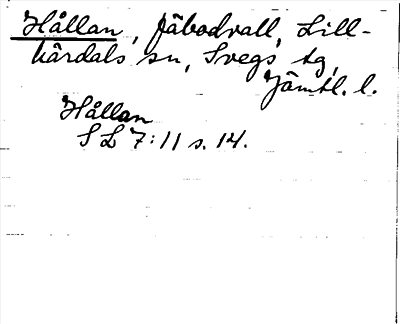 Hållan, fäbodvall, Lill-
härdals sn, Svegs tg,
Jämtl. l.
Hållan
S L 7:11 s. 14.